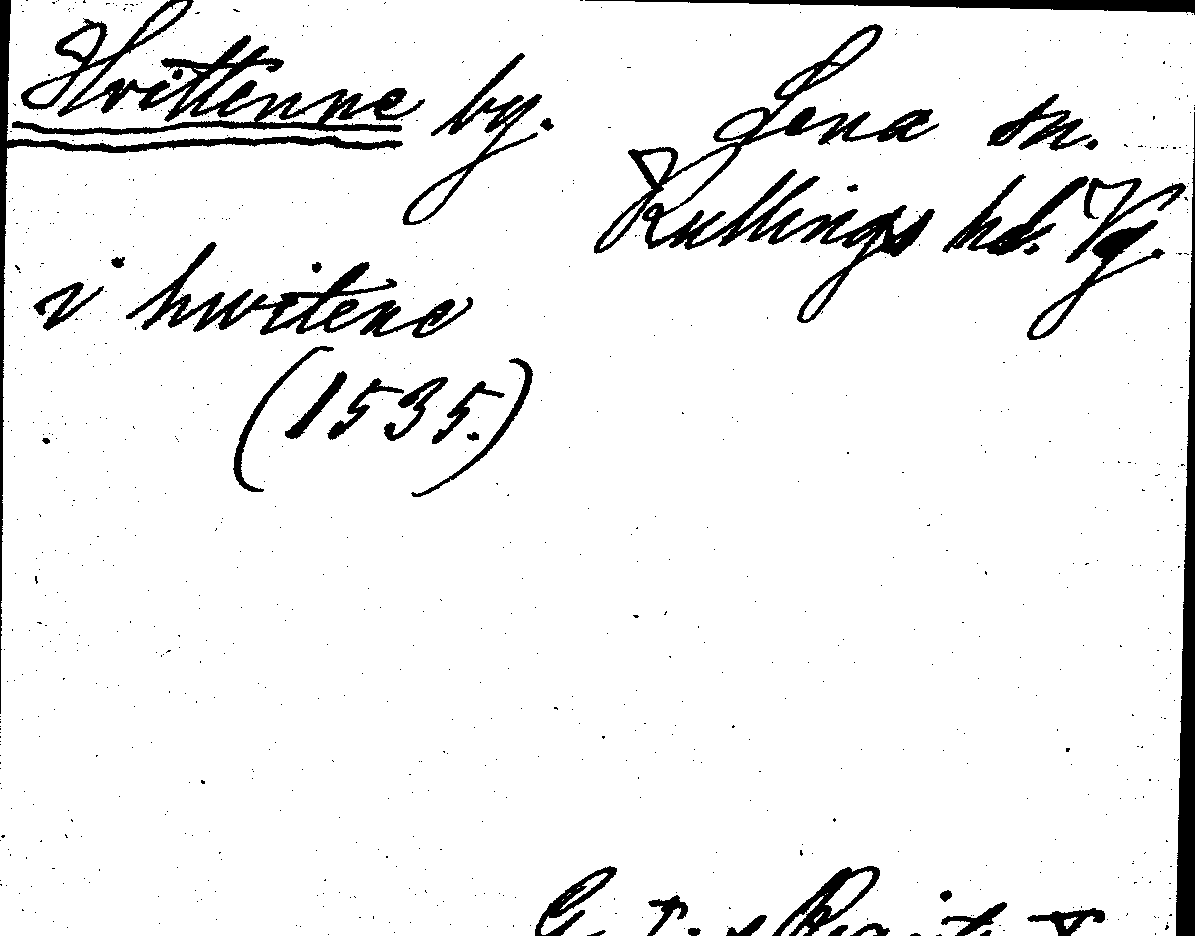 Hvittenne by. Lena sn.
Kullings hd. Vg.
i hwitene
(1535.)